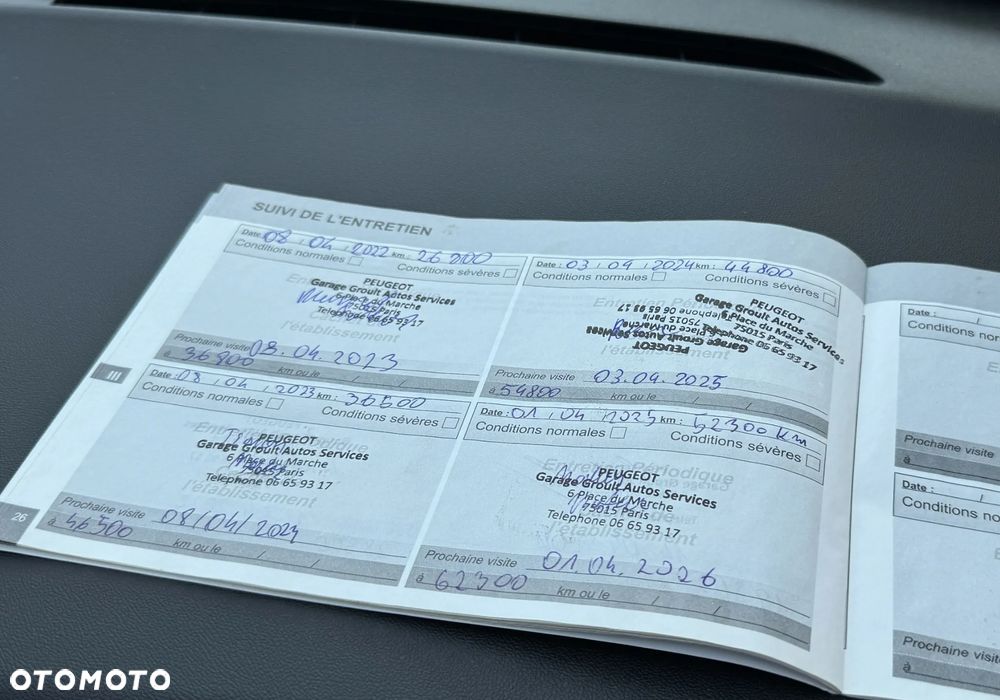 SUIVI DE L'ENTRETIEN
Date: 08 / 04 / 2022 km: 26 800
Conditions normales
Conditions sévères
PEUGEOT
Garage Groult Autos Services
6 Place du Marche
75015 Paris
Telephone 06 65 93 17
l'établissement
Prochaine visite 08.04.2023
à 36800 km ou le / /
III
Date: 08 / 04 / 2023 km: 36500
Conditions normales
Conditions sévères
PEUGEOT
Garage Groult Autos Services
6 Place du Marche
75015 Paris
Telephone 06 65 93 17
l'établissement
Prochaine visite 08/04/2024
à 46500 km ou le / /
26
Date: 03 / 04 / 2024 km: 44800
Conditions normales
Conditions sévères
PEUGEOT
Garage Groult Autos Services
6 Place du Marche
75015 Paris
Telephone 06 65 93 17
PEUGEOT
Garage Groult Autos Services
6 Place du Marche
75015 Paris
Telephone 06 65 93 17
Prochaine visite 03.04.2025
à 54800 km ou le / /
Date: 01 / 04 / 2025 km: 52300 km
Conditions normales
Conditions sévères
Entretien Périodique
PEUGEOT
Garage Groult Autos Services
6 Place du Marche
75015 Paris
Telephone 06 65 93 17
l'établissement
Prochaine visite 01.04.2026
à 62300 km ou le / /
Date : /
Conditions
Prochaine visite
à
Date : /
Conditions no
Prochaine visite
à
OTOMOTO